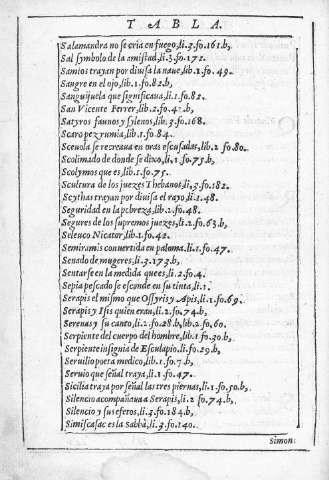 TABLA.
Salamandra no se cria en fuego, li.3.fo.161.b,
Sal symbolo de la amistad, li.3.fo.172.
Samios trayan por diuisa la naue, lib.1.fo.49.
Sangre en el ojo, lib.1.fo.82.b,
Sanguijuela que significaua, li.1.fo.82.
San Vicente Ferrer, lib.2.fo.47.b,
Satyros faunos y sylenos, lib.3.fo.168.
Scaro pez rumia, lib.1.fo.84.
Sceuola se recreaua en oras escusadas, lib.2 fo.80.
Scolimado de donde se dixo, li,1 fo.75.b,
Scolymos que es, lib.1.fo.75.
Scultura de los juezes Thebanos, li,3.fo.182.
Scythas trayan por diuisa el rayo, li.1.48.
Seguridad en la pobreza, lib.2.fo.48.
Segures de los supremos juezes, li.2.fo.63.b,
Seleuco Nicator, lib.1.fo.42.
Semiramis conuertida en paloma. li.1.fo.47.
Senado de mugeres, li.3.173.b,
Sentarse en la medida que es, li.2.fo.4.
Sepia pescado se esconde en su tinta, li.1.
Serapis el mismo que Ossyris y Apis, li.1.fo.69.
Serapis y Isis quien eran, li.2.fo.74.b,
Serenas y su canto, li.2.fo.28.b, lib.2.fo,60.
Serpiente del cuerpo del hombre, lib.1.fo.30.b,
Serpiente insignia de Esculapio. li.fo.29.b,
Seruilio poeta medico, lib.1.fo.7.b,
Seruio que señal traya, li.1.fo.47.
Sicilia traya por señal las tres piernas, li.1.fo,50.b,
Silencio acompañaua a Serapis, li.2 fo.74.b,
Silencio y sus eferos, li.3.fo.184.b,
Simiscasac es la sabbà, li.3.fo.140.
Simon: